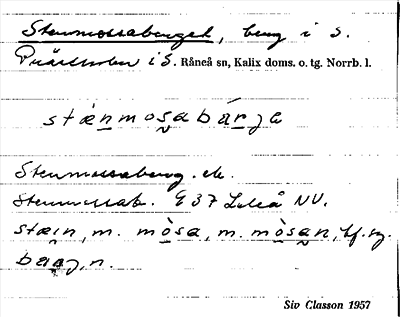 Stenmossaberget, berg i S.
Prästholm i S. Råneå sn, Kalix doms. o. tg. Norrb. l.
stænmosabárjə
Stenmossaberg. ek.
Stenmossab. G 37 Luleå NV.
stæın, m. mòsa, m. mòsan, bf. sg.
barj, n.
Siv Classon 1957